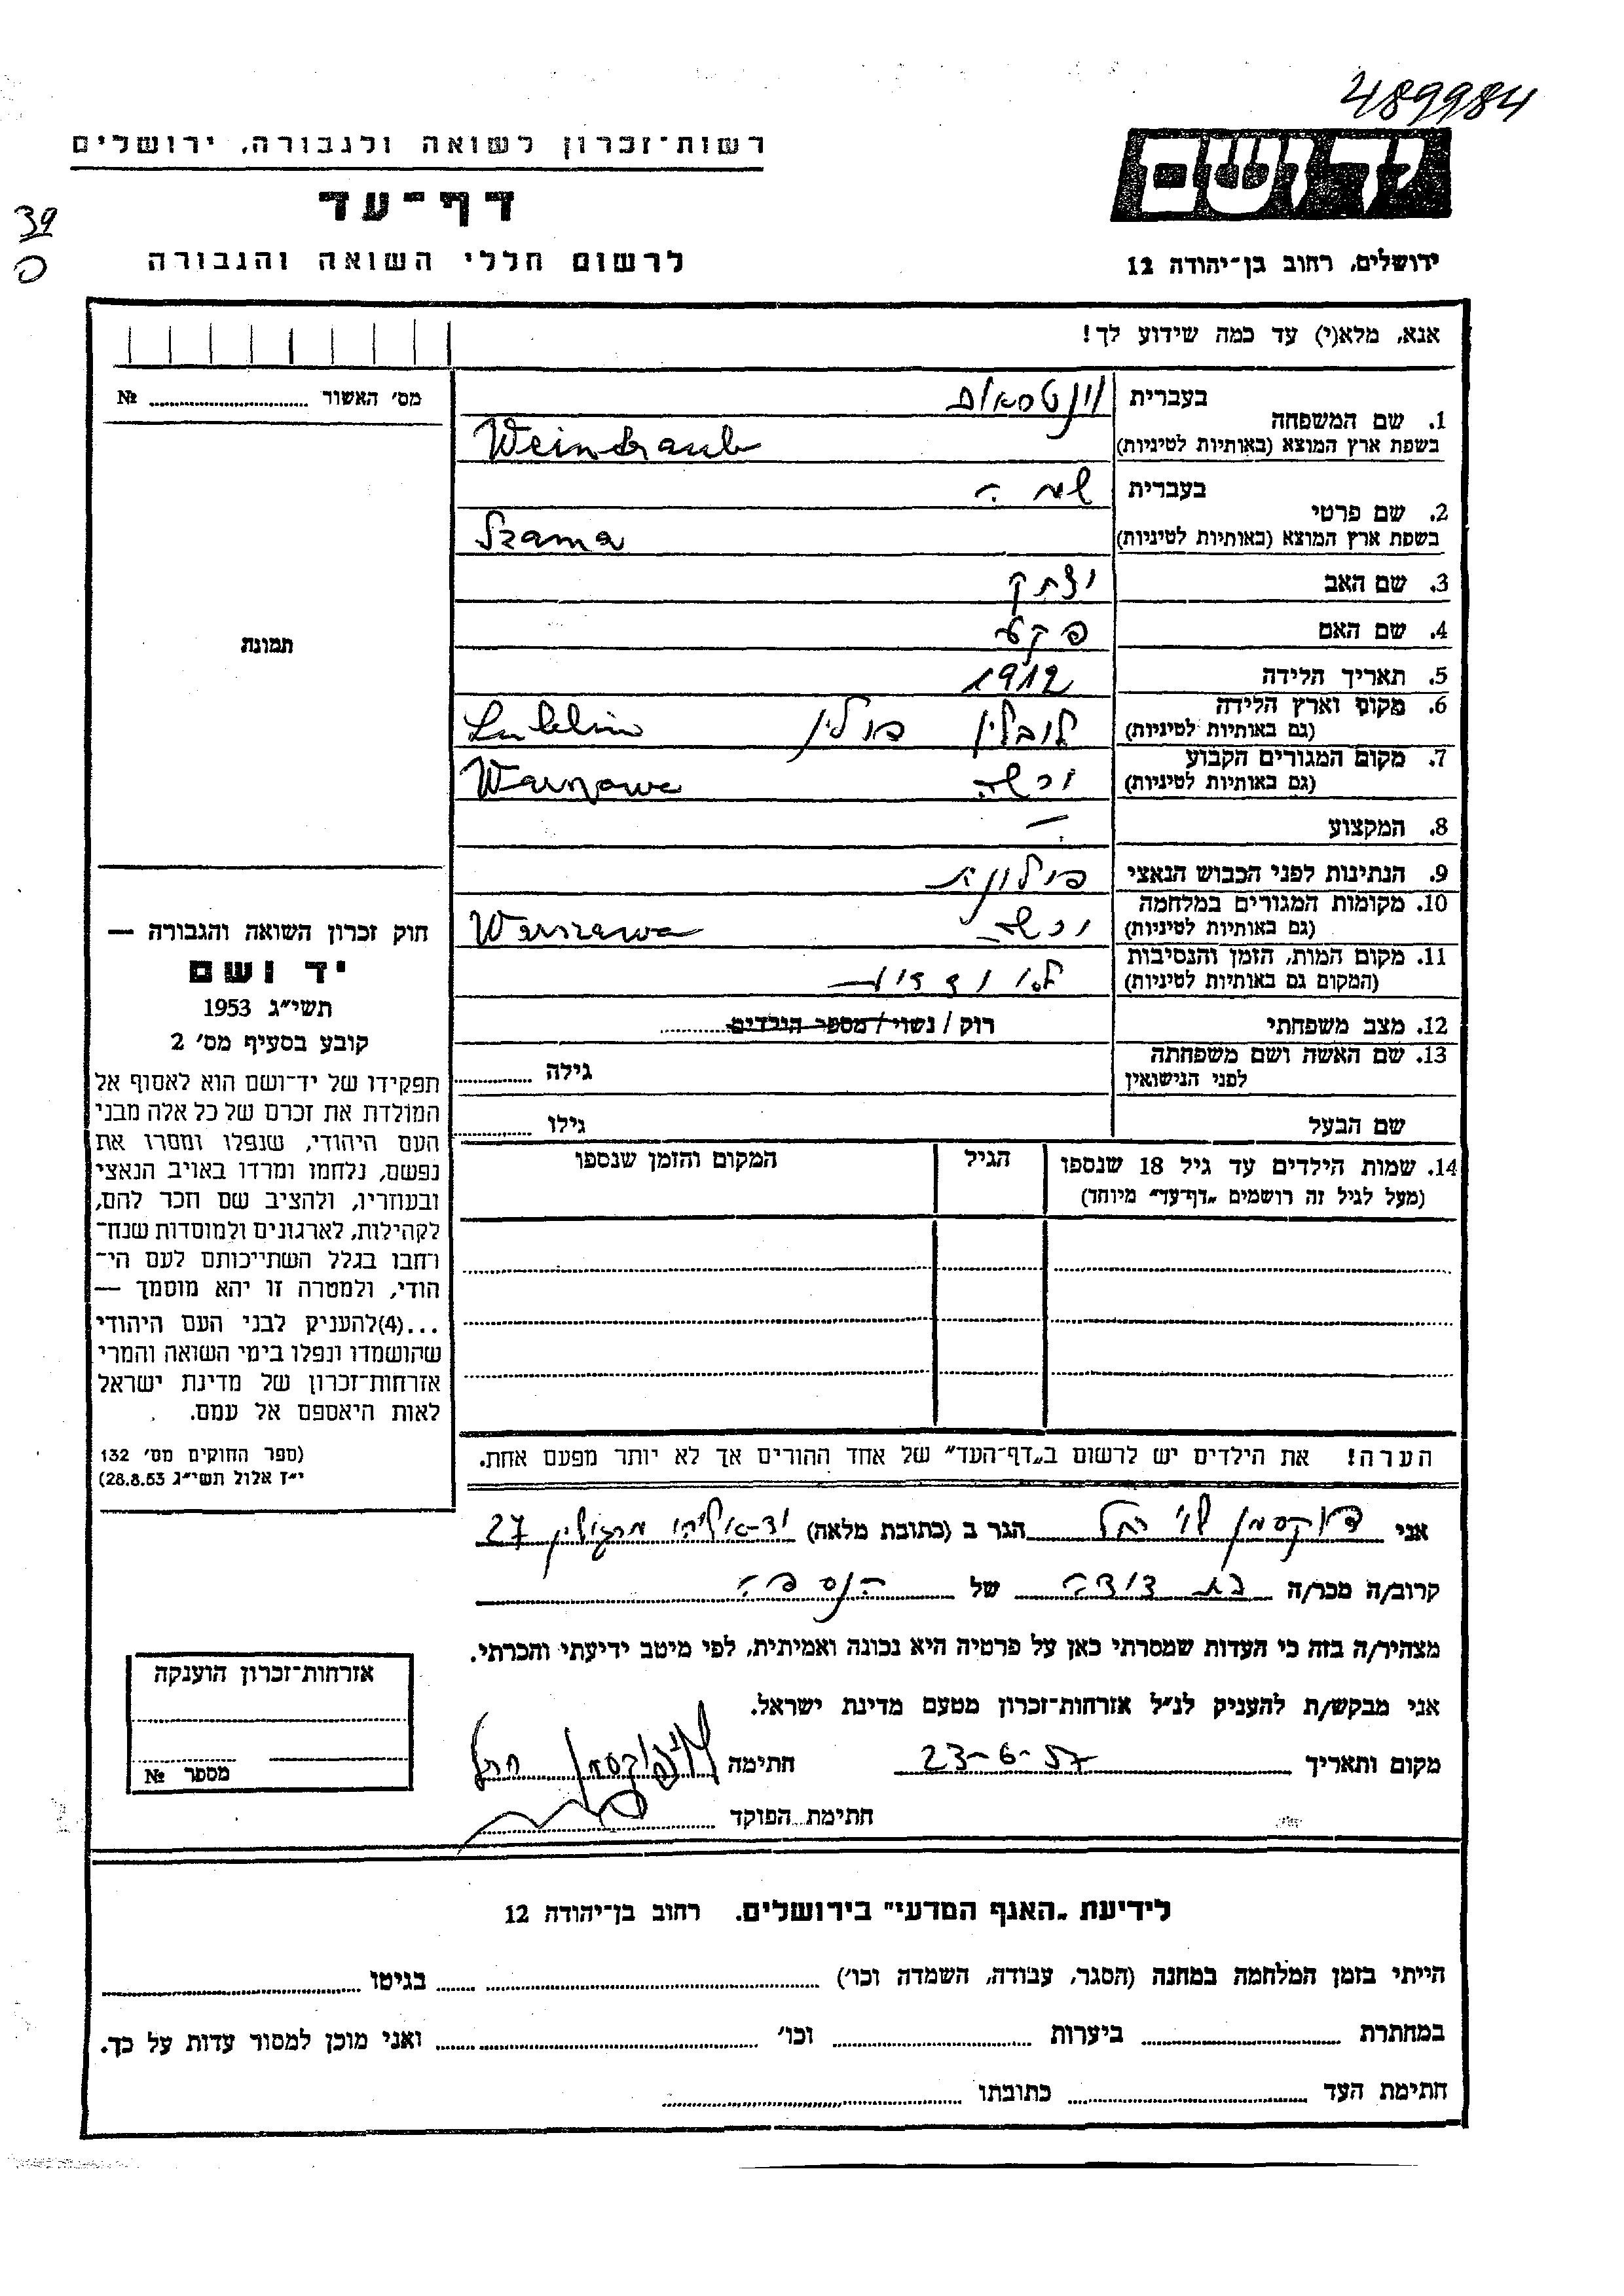 489984
יד ושם
רשות־זכרון לשואה ולגבורה, ירושלים
דף־עד
39
לרשום חללי השואה והגבורה
ירושלים, רחוב בן־יהודה 12
אנא, מלא(י) עד כמה שידוע לך!
מס' האשור № 
בעברית
1. שם המשפחה
בשפת ארץ המוצא (באותיות לטיניות) Weintraub
בעברית
2. שם פרטי
בשפת ארץ המוצא (באותיות לטיניות) Szama
3. שם האב יצחק
4. שם האם
5. תאריך הלידה 1912
6. מקום וארץ הלידה לובלין פולין Lublin
(גם באותיות לטיניות)
7. מקום המגורים הקבוע ורשה Warszawa
(גם באותיות לטיניות)
8. המקצוע —
9. הנתינות לפני הכבוש הנאצי פולונית
10. מקומות המגורים במלחמה ורשה Warszawa
(גם באותיות לטיניות)
11. מקום המות, הזמן והנסיבות
(המקום גם באותיות לטיניות)
12. מצב משפחתי רוק / נשוי / מספר הילדים
13. שם האשה ושם משפחתה גילה
לפני הנישואין
שם הבעל גילו
14. שמות הילדים עד גיל 18 שנספו הגיל המקום והזמן שנספו
(מעל לגיל זה רושמים „דף־עד” מיוחד)
תמונת
חוק זכרון השואה והגבורה —
יד ושם
תשי״ג 1953
קובע בסעיף מס' 2
תפקידו של יד־ושם הוא לאסוף אל
המולדת את זכרם של כל אלה מבני
העם היהודי, שנפלו ומסרו את
נפשם, נלחמו ומרדו באויב הנאצי
ובעוזריו, ולהציב שם וזכר להם,
לקהילות, לארגונים ולמוסדות שנח־
רחבו בגלל השתייכותם לעם הי־
הודי, ולמטרה זו יהא מוסמך —
...(4)להעניק לבני העם היהודי
שהושמדו ונפלו בימי השואה והמרי
אזרחות־זכרון של מדינת ישראל
לאות היאספם אל עמם.
(ספר החוקים מס' 132
י״ז אלול תשי״ג 28.8.53)
הערה! את הילדים יש לרשום ב„דף־העד” של אחד ההורים אך לא יותר מפעם אחת.
אני הגר ב (כתובת מלאה) יד־אליהו מרגולין 27
קרוב/ה מכר/ה בת דודה של הנספה
מצהיר/ה בזה כי העדות שמסרתי כאן על פרטיה היא נכונה ואמיתית, לפי מיטב ידיעתי והכרתי.
אני מבקש/ת להעניק לנ״ל אזרחות־זכרון מטעם מדינת ישראל.
מקום ותאריך 23-6-57 חתימה
חתימת הפוקד
אזרחות־זכרון הוענקה
מספר №
לידיעת „האגף המדעי” בירושלים. רחוב בן־יהודה 12
הייתי בזמן המלחמה במחנה (הסגר, עבודה, השמדה וכו') בגיטו
במחתרת ביערות וכו' ואני מוכן למסור עדות על כך.
חתימת העד כתובתו